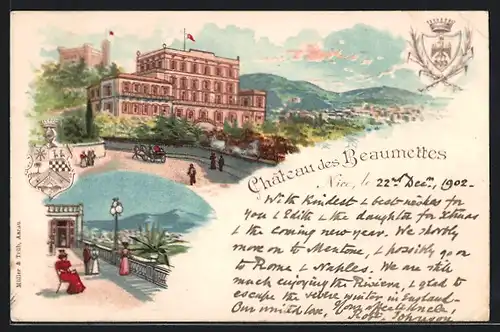 Château des Beaumettes
Nice, le 22nd Decm, 1902.
With the kindest & best wishes for
you & Edith & the daughter for Xmas
& the coming new year. We shortly
move on to Mentone, & possibly go on
to Rome & Naples. We are still
much enjoying the Riviera, & glad to
escape the severe winter in England -
Our united love. Your affect. Uncle,
Johnson
Müller & Trüb, Aarau.